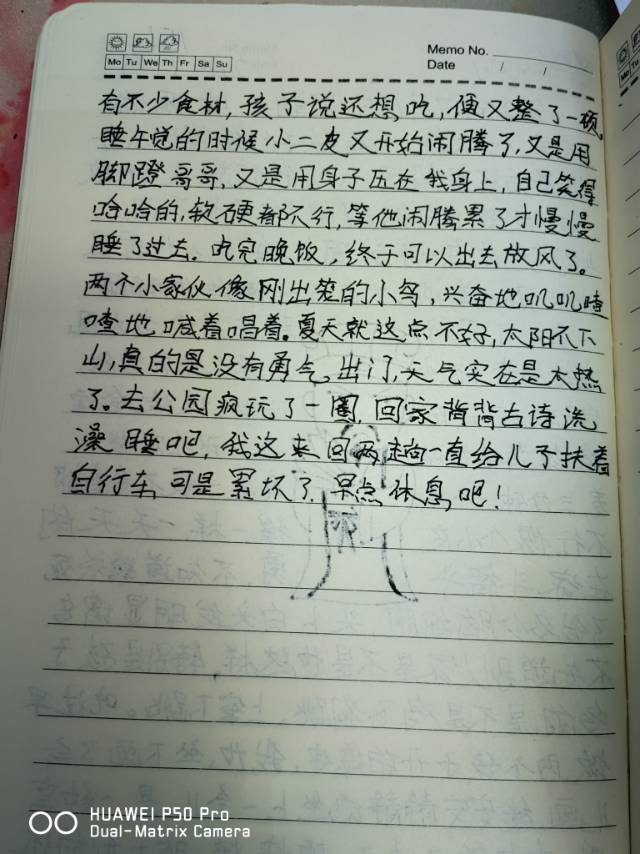 Memo No.
Mo Tu We Th Fr Sa Su
Date / /
有不少食材,孩子说还想吃,便又整了一顿。
睡午觉的时候小二皮又开始闹腾了,又是用
脚蹬哥哥,又是用身子压在我身上,自己笑得
哈哈的,软硬都不行,等他闹腾累了才慢慢
睡了过去。吃完晚饭,终于可以出去放风了。
两个小家伙像刚出笼的小鸟,兴奋地叽叽喳
喳地喊着唱着。夏天就这点不好,太阳不下
山,真的是没有勇气出门,天气实在是太热
了。去公园疯玩了一圈,回家背背古诗洗
澡睡吧,我这来回两趟一直给儿子扶着
自行车,可是累坏了,早点休息吧!
HUAWEI P50 Pro
Dual-Matrix Camera